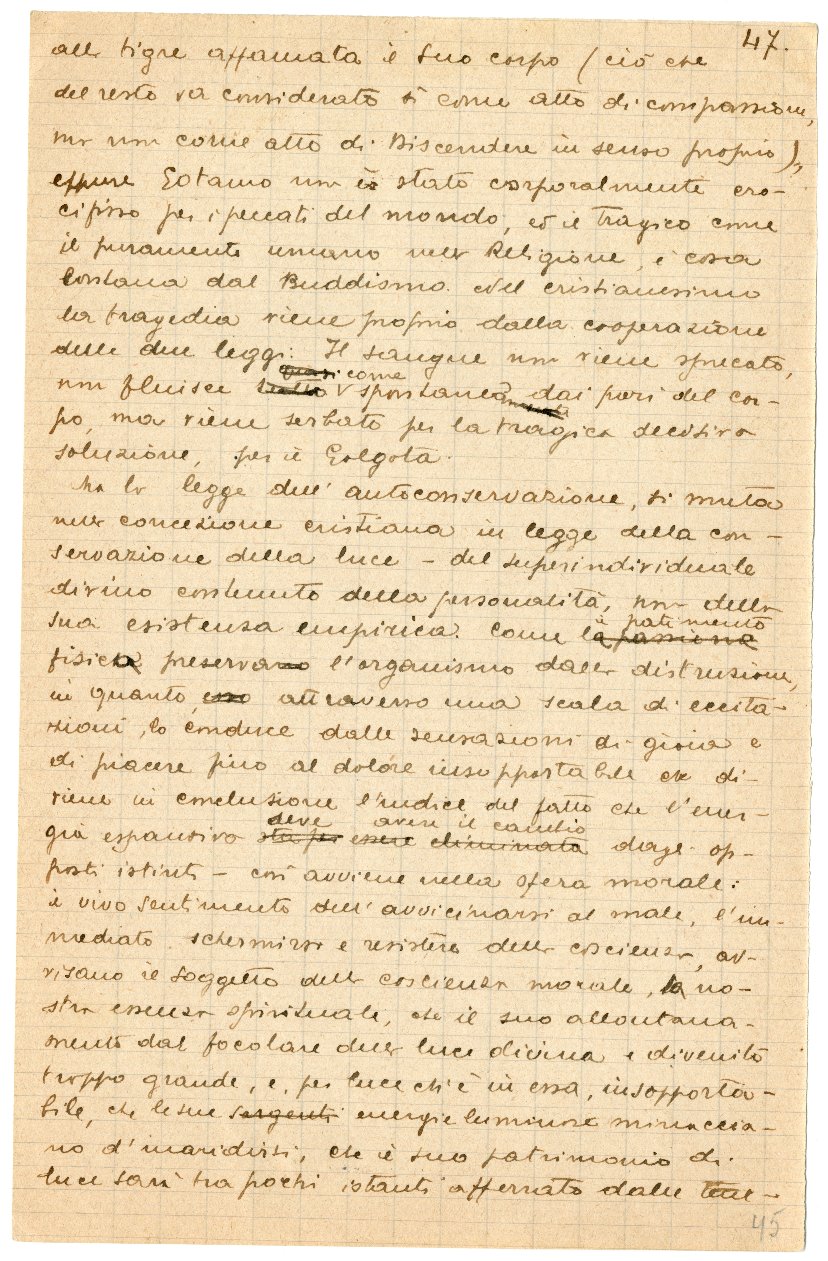 47.
alla tigre affamata il suo corpo (ciò che
del resto va considerato sì come atto di compassione,
ma non come atto di Discendere in senso proprio),
eppure Gotamo non è stato corporalmente cro-
cifisso per i peccati del mondo, ed il tragico come
il puramente umano nella Religione, è cosa
lontana dal Buddismo. Nel cristianesimo
la tragedia viene proprio dalla cooperazione
delle due leggi: Il sangue non viene sprecato,
quasi come
non fluisce spontaneo dai pori del cor-
po, ma viene serbato per la tragica decisiva
soluzione, per il Golgota.
Ma la legge dell'autoconservazione, si muta
nella concezione cristiana in legge della con-
servazione della luce – del superindividuale
divino contenuto della personalità, non della
il patimento
sua esistenza empirica. Come la passione
fisico preserva l'organismo dalla distruzione,
in quanto, esso attraverso una scala di eccita-
zioni, lo conduce dalle sensazioni di gioia e
di piacere fino al dolore insopportabile che di-
viene in conclusione l'indice del fatto che l'ener-
deve avere il cambio
gia espansiva sta per essere eliminata dagli op-
posti istinti – così avviene nella sfera morale:
il vivo sentimento dell'avvicinarsi al male, l'im-
mediato schermirsi e resistere della coscienza, av-
visano il soggetto della coscienza morale, la no-
stra essenza spirituale, che il suo allontana-
mento dal focolare della luce divina è divenuto
troppo grande, e, per la luce ch'è in essa, insopporta-
bile, che le sue sorgenti energie luminose minaccia-
no d'inaridirsi, che il suo patrimonio di
luce sarà tra pochi istanti afferrato dalle tene-
45